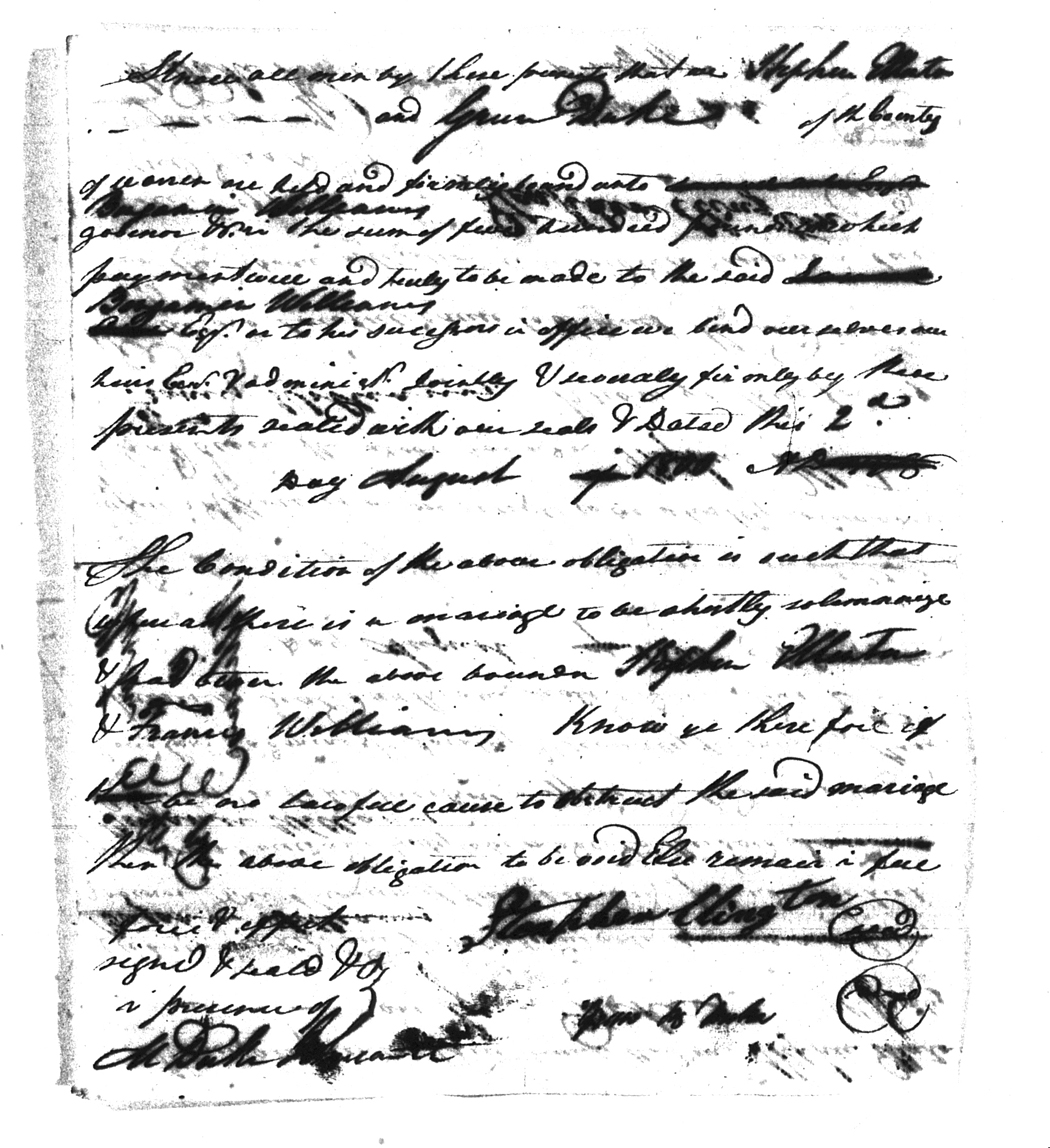 Know all men by these presents that we Stephen Minton
and Green Duke of th County
of waren are held and firmly bound unto
Benjamin Williams
govenor &c in the sum of five hundred pounds which
payment well and truly to be made to the said
Benjamin Williams
Esqr. or to his sucessors in office we bind ourselves our
heirs Exrs. & administrs. Jointly & severaly firmly by these
presents sealed with our seals & Dated this 2d
Day August 1800
The Condition of the above obligation is such that
whereas there is a marriage to be shortly solemnnize
& had betwen the above bounden Stephen Minton
& Francis Williams Know ye there fore if
there be no lawfull cause to obstruct the said mariage
then the above obligation to be void Else remain in full
force & effect Stephen
signd & seald & D
in presence of Green Duke
M Duke